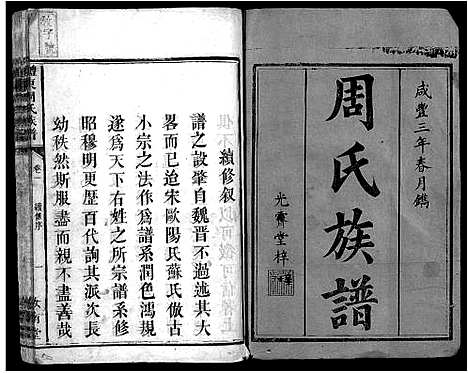 咸豐三年春月鐫
周氏族譜
光霽堂梓
續修叙
譜之設肇自魏晉不過述其大
畧而已迨宋歐陽氏蘇氏倣古
小宗之法作爲譜系潤色鴻規
遂爲天下右姓之所宗譜系修
昭穆明更歷百代詢其派次長
幼秩然斯服盡而親不盡善哉
周氏族譜
卷一
續修序
一